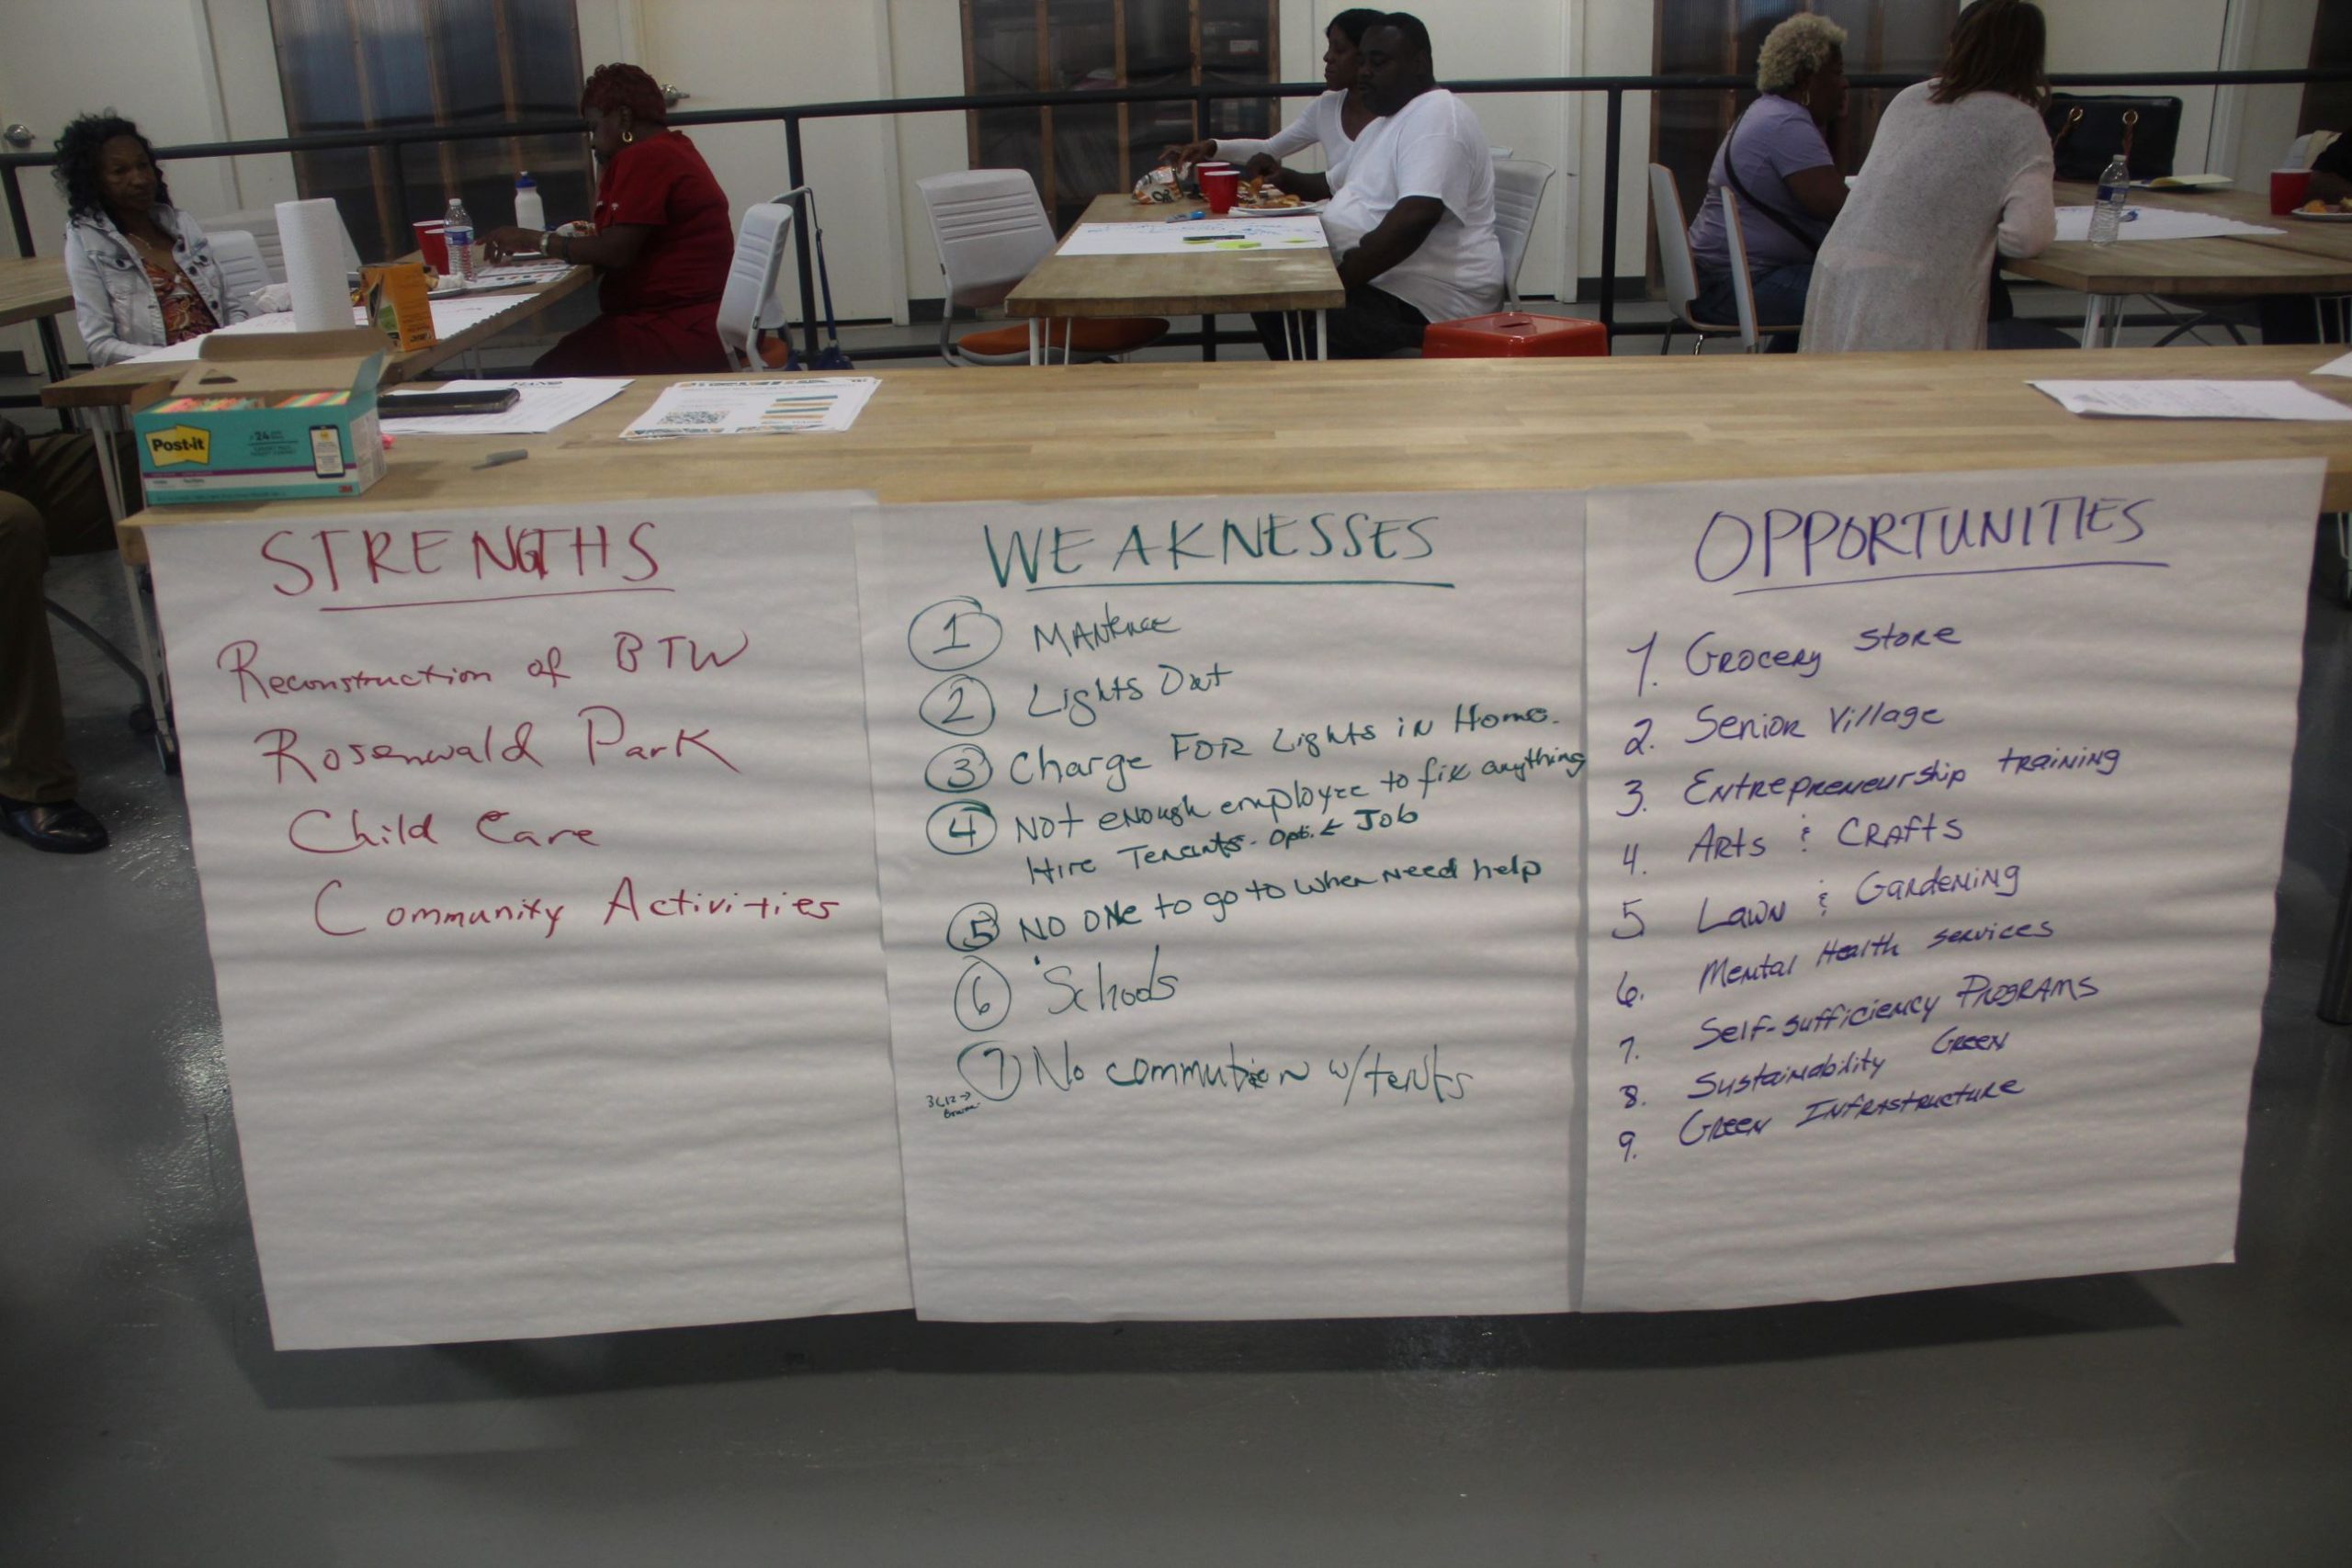 Post-it
24
3M
STRENGTHS
Reconstruction of BTW
Rosenwald Park
Child Care
Community Activities
WEAKNESSES
1 MANtence
2 Lights Out
3 Charge FOR Lights iN Home.
4 Not eNough employee to fix anything
Hire Tenants - Opt. & Job
5 NO ONe to go to when Need help
6 Schools
7 No commution w/tents
OPPORTUNITIES
1. Grocery Store
2. Senior Village
3. Entrepreneurship training
4. Arts & Crafts
5 Lawn & Gardening
6. Mental Health services
7. Self-sufficiency Programs
8. Sustainability Green
9. Green Infrastructure